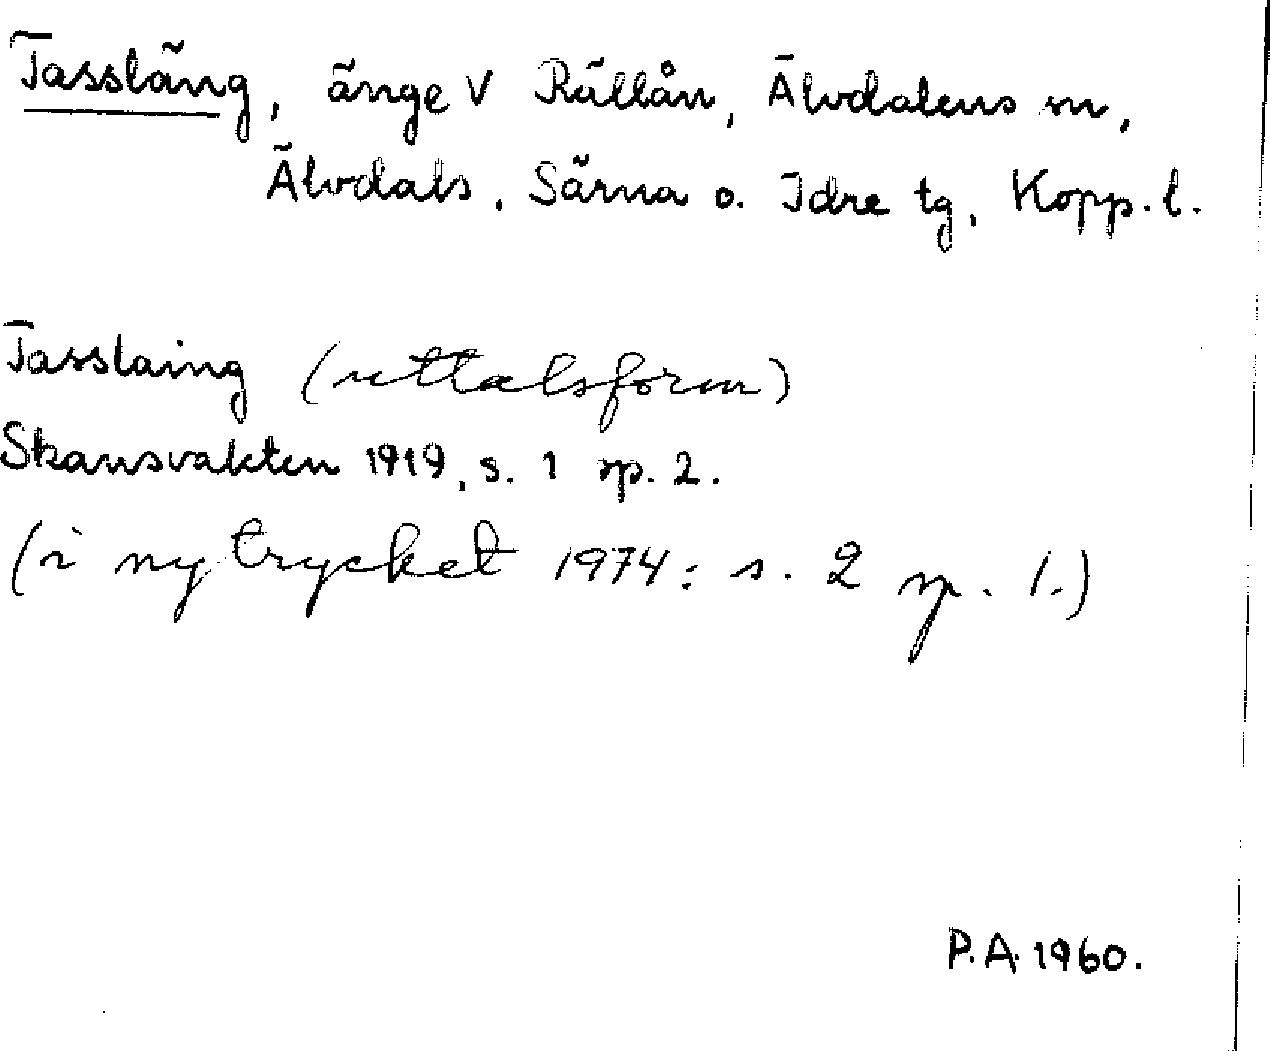 Tassläng, änge V Rällån, Älvdalens sn,
Älvdals, Särna o. Idre tg, Kopp. l.
Tasslaing (uttalsform)
Skansvakten 1919, s. 1 sp. 2.
(i nytrycket 1974: s. 2 sp. 1.)
P.A. 1960.